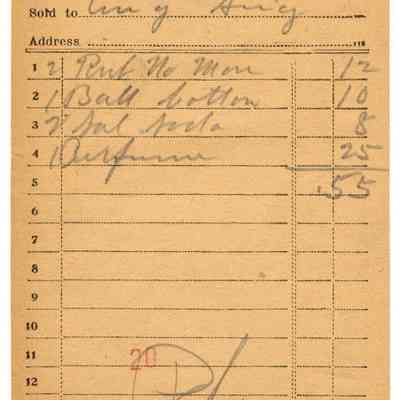 Sold to
Address
1 2 Rub No More 12
2 1 Ball Cotton 10
3 2 Sal Soda 8
4 1 Perfume 25
5 .55
6
7
8
9
10
11 20
12